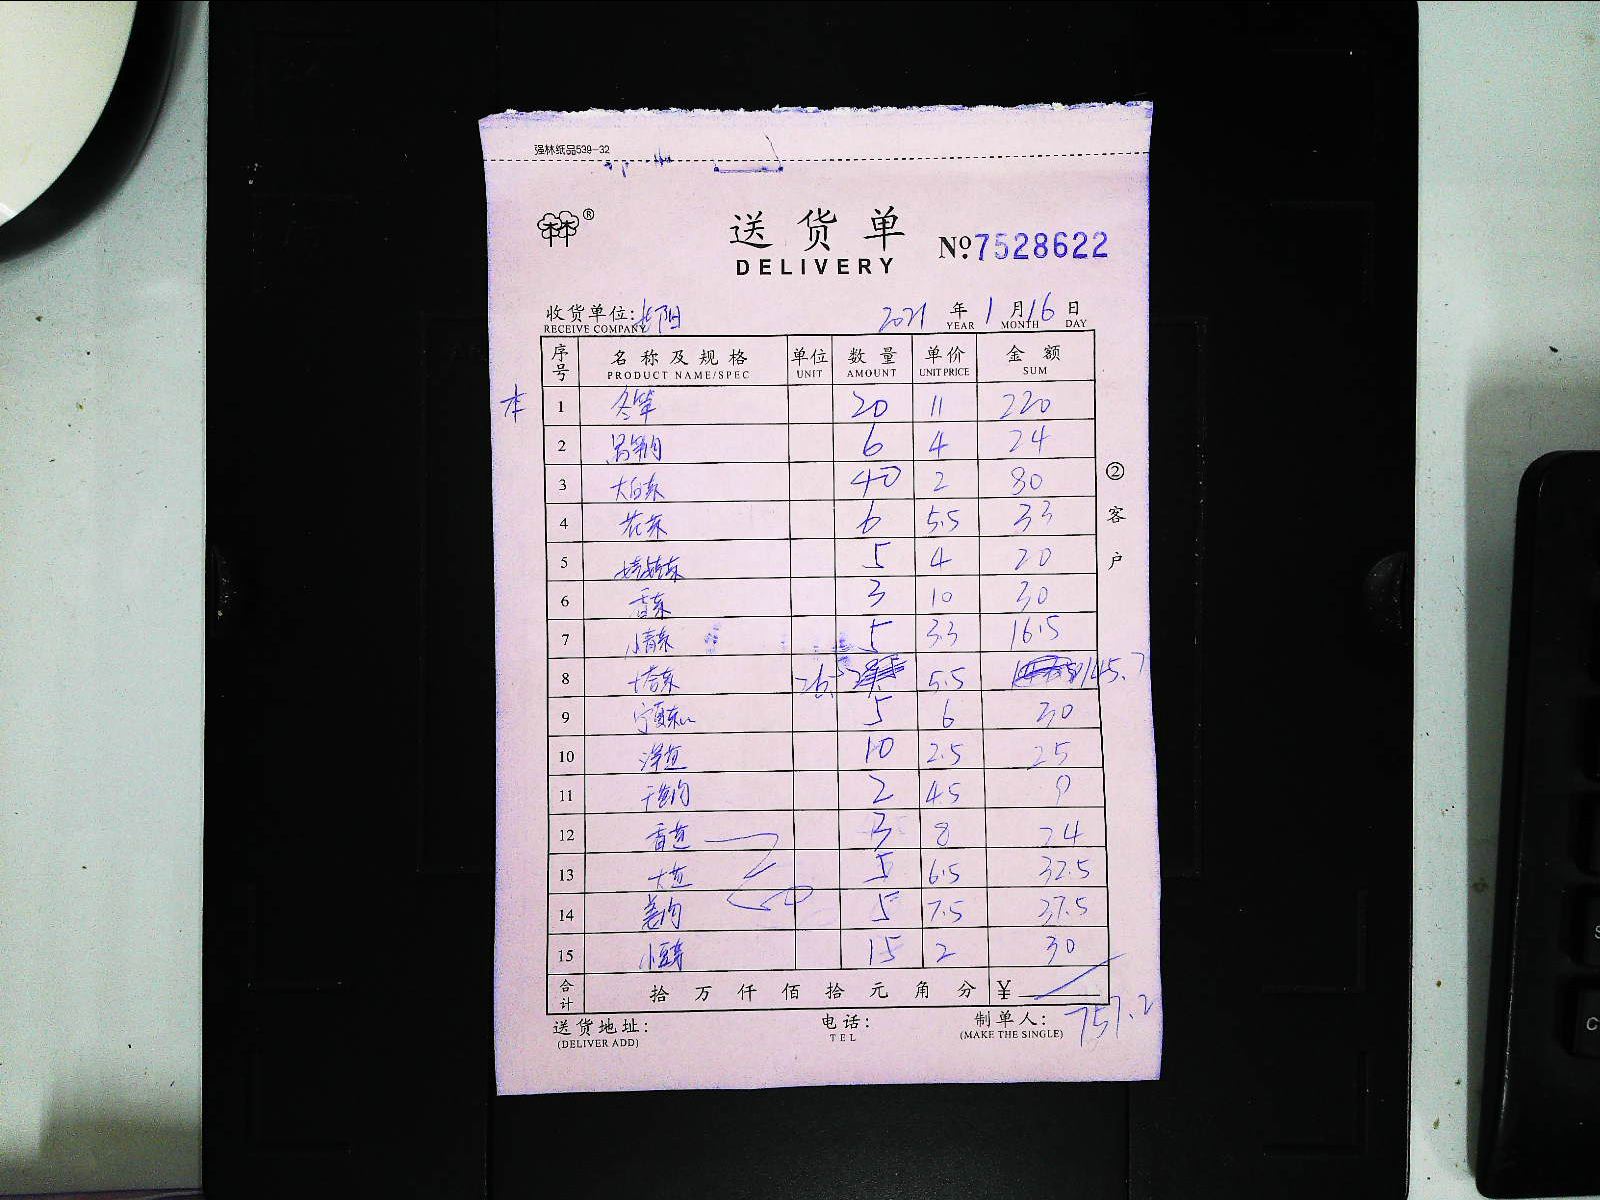 强林纸品539-32
送货单
DELIVERY
®
№7528622
收货单位: 2021 年 1 月 16 日
RECEIVE COMPANY YEAR MONTH DAY
序号 名称及规格 单位 数量 单价 金额
PRODUCT NAME/SPEC UNIT AMOUNT UNIT PRICE SUM
本 1 冬笋 20 11 220
2 6 4 24
3 大白菜 40 2 80
4 花菜 6 5.5 33
5 娃娃菜 5 4 20
6 香菜 3 10 30
7 小青菜 5 3.3 16.5
8 塔菜 26.5 5.5 145.7
9 5 6 30
10 洋芋 10 2.5 25
11 2 4.5 9
12 3 8 24
13 5 6.5 32.5
14 5 7.5 37.5
15 15 2 30
合计 拾 万 仟 佰 拾 元 角 分 ¥
757.2
送货地址: 电话: 制单人:
(DELIVER ADD) TEL (MAKE THE SINGLE)
②客户